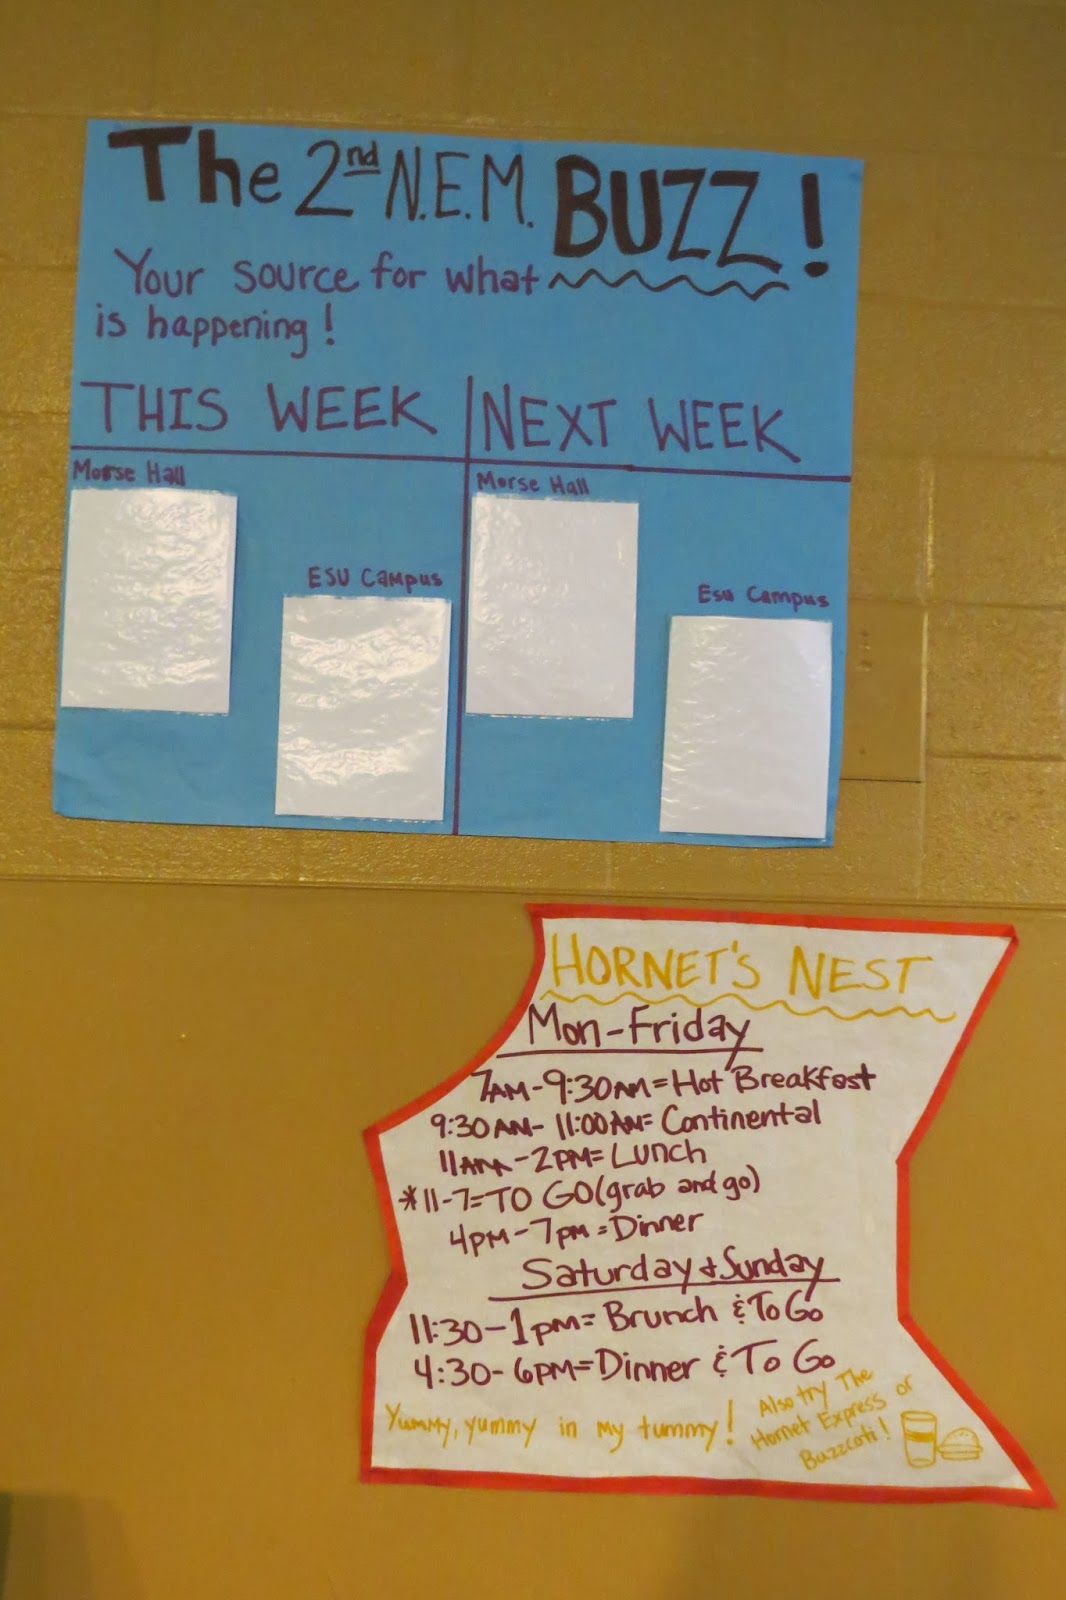 The 2nd N.E.M. BUZZ!
Your source for what
is happening!
THIS WEEK
NEXT WEEK
Morse Hall
ESU Campus
Morse Hall
Esu Campus
HORNET'S NEST
Mon-Friday
7AM-9:30AM=Hot Breakfast
9:30AM-11:00AM=Continental
11AM-2PM=Lunch
*11-7=TO GO(grab and go)
4PM-7PM=Dinner
Saturday & Sunday
11:30-1pm=Brunch & To Go
4:30-6PM=Dinner & To Go
Yummy, yummy in my tummy!
Also try The
Hornet Express or
Buzzcoti!